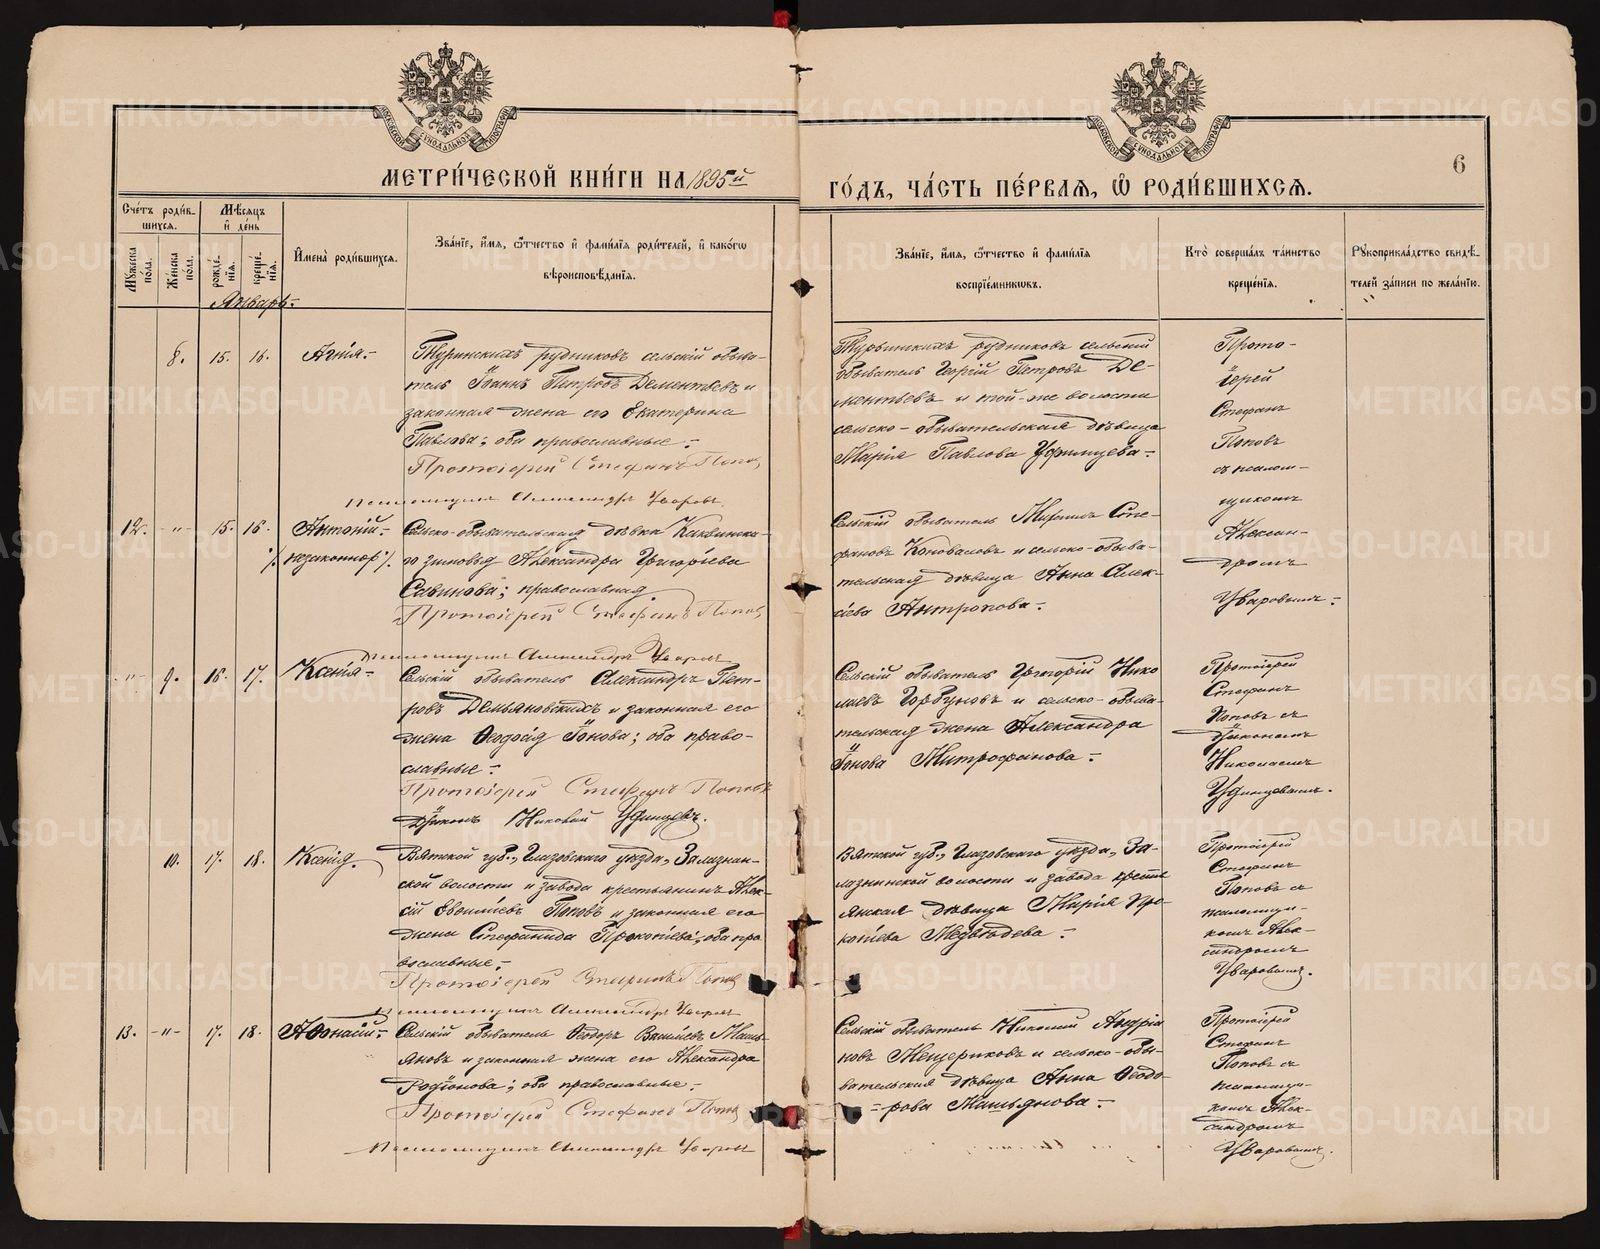 МОСКОВСКОЙ СѴНОДАЛЬНОЙ ТИПОГРАФІИ
МОСКОВСКОЙ СѴНОДАЛЬНОЙ ТИПОГРАФІИ
6
МЕТРИ́ЧЕСКОЙ КНИ́ГИ НА 1895й
ГО́ДЪ, ЧА́СТЬ ПЕ́РВАЯ, Ѡ҆ РОДИ́ВШИХСЯ.
Сче́тъ роди́в-
шихся.
Мѣ́сяцъ
и҆ де́нь
Мꙋжеска по́ла.
Же́нска по́ла.
рожде́нїя.
креще́нїя.
И҆мена̀ роди́вшихся.
Зва́нїе, и҆́мя, ѻ҆́тчество и҆ фами́лїя роди́телей, и҆ како́гѡ
вѣроисповѣ́данїя.
Зва́нїе, и҆́мя, ѻ҆́тчество и҆ фами́лїя
воспрїе́мниковъ.
Кто̀ соверша́лъ та́инство
креще́нїя.
Рꙋкоприкла́дство свидѣ́-
телей за́писи по жела́нїю.
Январь.
8. 15. 16. Агнія.
Туринскихъ рудниковъ сельскій обыва-
тель Іоаннъ Петровъ Дементьевъ и
законная жена его Екатерина
Павлова; оба православные.
Протоіерей Стефанъ Попов
Псаломщикъ Александръ Уваровъ
Турьинскихъ рудниковъ сельскій
обыватель Георгій Петровъ Де-
ментьевъ и той-же волости
сельско-обывательская дѣвица
Марія Павлова Уфимцева
Прото-
іерей
Стефанъ
Поповъ
съ псалом-
щикомъ
Александромъ
Уваровымъ
12. -"- 15. 16. Антоній
незаконнор
Сельско-обывательская дѣвка
зимовья Александра Григоріева
Савинова; православная.
Протоіерей Стефанъ Попов
Псаломщикъ Александръ Уваровъ
Сельскій обыватель Михаилъ Сте-
фановъ Коновалов и сельско-обыва-
тельская дѣвица Анна Алек-
сіева Антропова
-"- 9. 16. 17. Ксенія
Сельскій обыватель Александръ Пет-
ровъ Демьяновскихъ и законная его
жена Ѳеодосія Іонова; оба право-
славные
Протоіерей Стефанъ Поповъ
Діаконъ Николай Уфимцевъ.
Сельскій обыватель Григорій Нико
лаевъ Горбуновъ и сельско-обыва-
тельская жена Александра
Іонова Митрофанова
Протоіерей
Стефанъ
Поповъ съ
Діакономъ
Николаемъ
Уфимцевымъ.
10. 17. 18. Ксенія.
Вятской губ., Глазовскаго уѣзда, Залазнин-
ской волости и завода крестьянинъ Алек-
сій Поповъ и законная его
жена Стефанида Прокопіева; оба пра
вославные;
Протоіерей Стефанъ Попов
Псаломщикъ Александръ Уваровъ
Вятской губ., Глазовскаго уѣзда, За-
лазнинской волости и завода кресть
янская дѣвица Марія Про-
копіева Медвѣдева
Протоіерей
Стефанъ
Поповъ съ
псаломщи-
комъ Алек-
сандромъ
Уваровымъ.
13. -"- 17. 18. Аѳонасій
Сельскій обыватель Ѳеодоръ Васильевъ Машь-
яновъ и законная жена его Александра
Родіонова; оба православные
Протоіерей Стефанъ Попов
Псаломщикъ Александръ Уваровъ
Сельскій обыватель Николай Андріа
новъ Мещериковъ и сельско-обы-
вательская дѣвица Анна Ѳеодо-
=рова Машьянова
Протоіерей
Стефанъ
Поповъ съ
псаломщи-
комъ Алек-
сандромъ
Уваровымъ.
METRIKI.GASO-URAL.RU